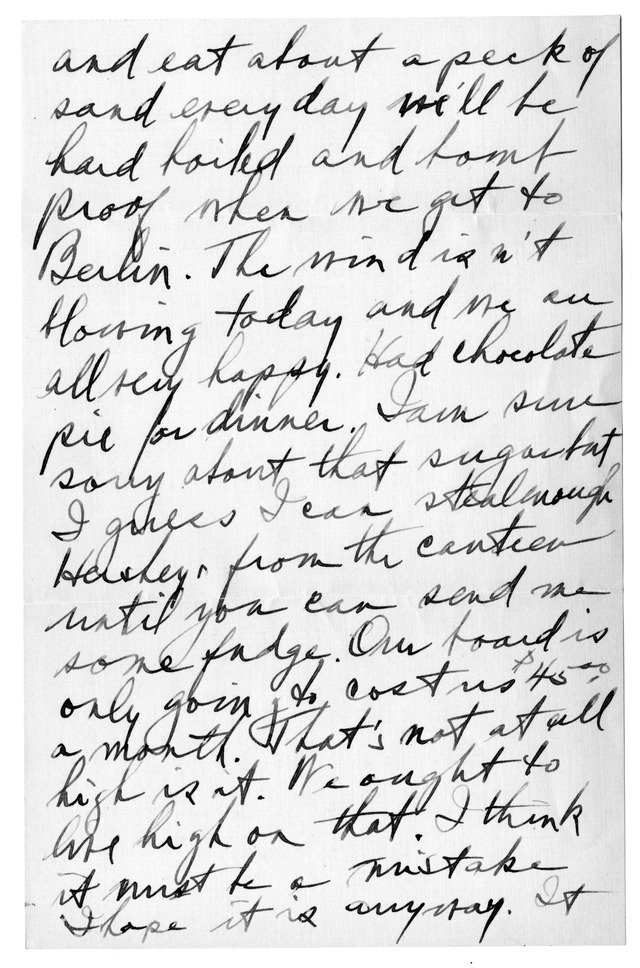 and eat about a peck of
sand every day we'll be
hard boiled and bomb
proof when we get to
Berlin. The wind isn't
blowing today and we are
all very happy. Had chocolate
pie for dinner. I am sure
sorry about that sugar but
I guess I can steal enough
Hersheys from the canteen
until you can send me
some fudge. Our board is
only going to cost us $45.00
a month. That's not at all
high is it. We ought to
live high on that. I think
it must be a mistake
I hope it is anyway. It